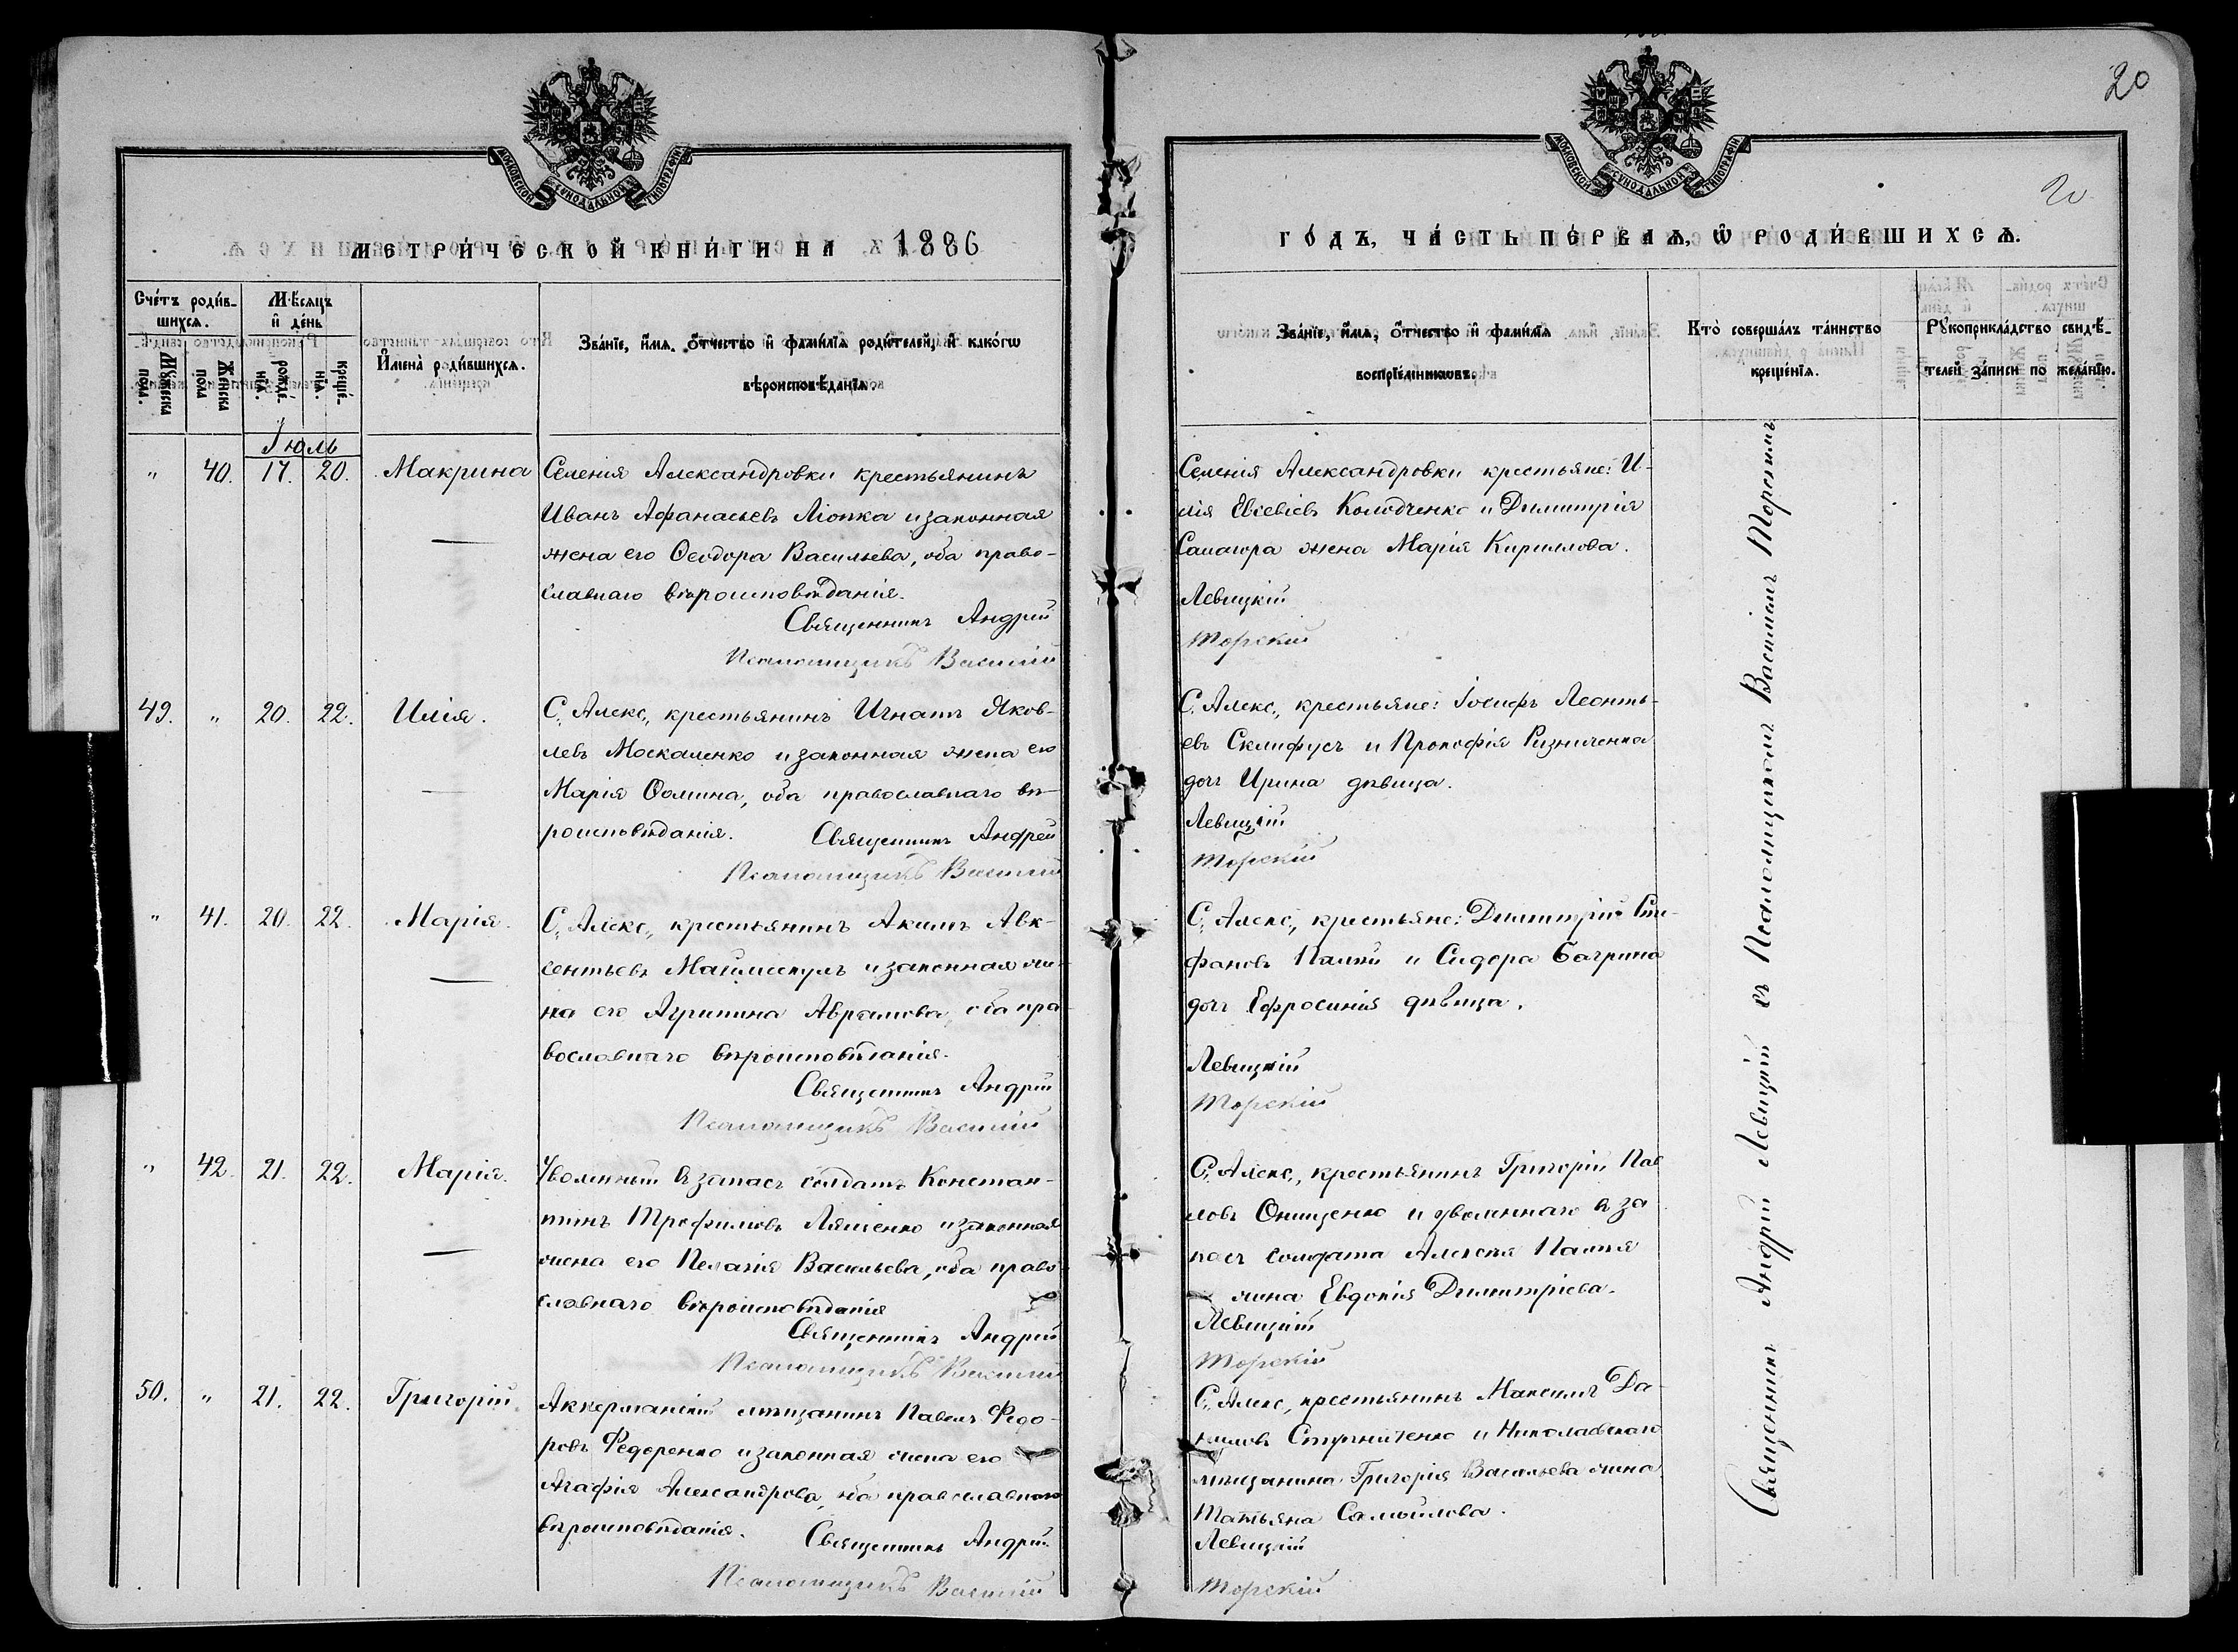 20
МОСКОВСКОЙ СѴНОДАЛЬНОЙ ТИПОГРАФІИ
МОСКОВСКОЙ СѴНОДАЛЬНОЙ ТИПОГРАФІИ
20
МЕТРИ́ЧЕСКОЙ КНИ́ГИ НА 1886
ГО́ДЪ, ЧА́СТЬ ПЕ́РВАѦ, Ѿ РОДИ́ВШИХСѦ.
Сче́тъ роди́в-
шихсѧ.
Мѣ́сѧцъ
и҆ де́нь
Мꙋжеска пола.
Женска пола.
рожде́-нїѧ.
креще́-нїѧ.
И҆мена̀ роди́вшихсѧ.
Зва́нїе, и҆́мѧ, ѻ҆́тчество и҆ фами́лїѧ роди́телей, и҆ како́гѡ
вѣроисповѣ́данїѧ.
Зва́нїе, и҆́мѧ, ѻ҆́тчество и҆ фами́лїѧ
воспрїе́мникѡвъ.
Кто̀ соверша́лъ та́инство
креще́нїѧ.
Рꙋкоприкла́дство свидѣ́-
телей за́писи по жела́нїю.
Іюль
" 40. 17. 20. Макрина
Селенія Александровки крестьянинъ
Иванъ Афанасьевъ Ліопка и законная
жена его Ѳеодора Васильева, оба право-
славнаго вѣроисповѣданія.
Священникъ Андрей
Псаломщикъ Василій
Селенія Александровки крестьяне: И-
лія Евсевіевъ Колодченко и Димитрія
жена Марія Кириллова.
Левицкій
Торскій
49. " 20. 22. Илія.
С. Алекс., крестьянинъ Игнатъ Яков-
левъ Москаленко и законная жена его
Марія Ѳомина, оба православнаго вѣ-
роисповѣданія. Священникъ Андрей
Псаломщикъ Василій
С. Алекс., крестьяне: Іосифъ Леонть-
евъ Склифусъ и Прокофія Ризниченка
дочь Ирина дѣвица.
Левицкій
Торскій
" 41. 20. 22. Марія.
С. Алекс., крестьянинъ Акимъ Авк-
сентьевъ и законная же-
на его Агрипина Аврамова, оба пра-
вославнаго вѣроисповѣданія.
Священникъ Андрей
Псаломщикъ Василій
С. Алекс., крестьяне: Димитрій Сте-
фановъ Палій и Сидора Багрина
дочь Ефросинія дѣвица.
Левицкій
Торскій
" 42. 21. 22. Марія.
Уволенный въ запасъ солдатъ Констан-
тинъ Трофимовъ Ляшенко и законная
жена его Пелагія Васильева, оба право-
славнаго вѣроисповѣданія
Священникъ Андрей
Псаломщикъ Василій
С. Алекс., крестьянинъ Григорій Пав-
ловъ Онищенко и уволеннаго въ за-
пасъ солдата Алексѣя Палія
жена Евдокія Димитріева.
Левицкій
Торскій
50. " 21. 22. Григорій.
Аккерманскій мѣщанинъ Павелъ Федо-
ровъ Федоренко и законная жена его
Агафія Александрова, оба православнаго
вѣроисповѣданія. Священникъ Андрей
Псаломщикъ Василій
С. Алекс., крестьянинъ Максимъ Да-
ниловъ и Николаевскаго
мѣщанина Григорія Васильева жена
Татьяна Самойлова.
Левицкій
Торскій
Священникъ Андрей Левицкій съ Псаломщикомъ Василіемъ Торскимъ